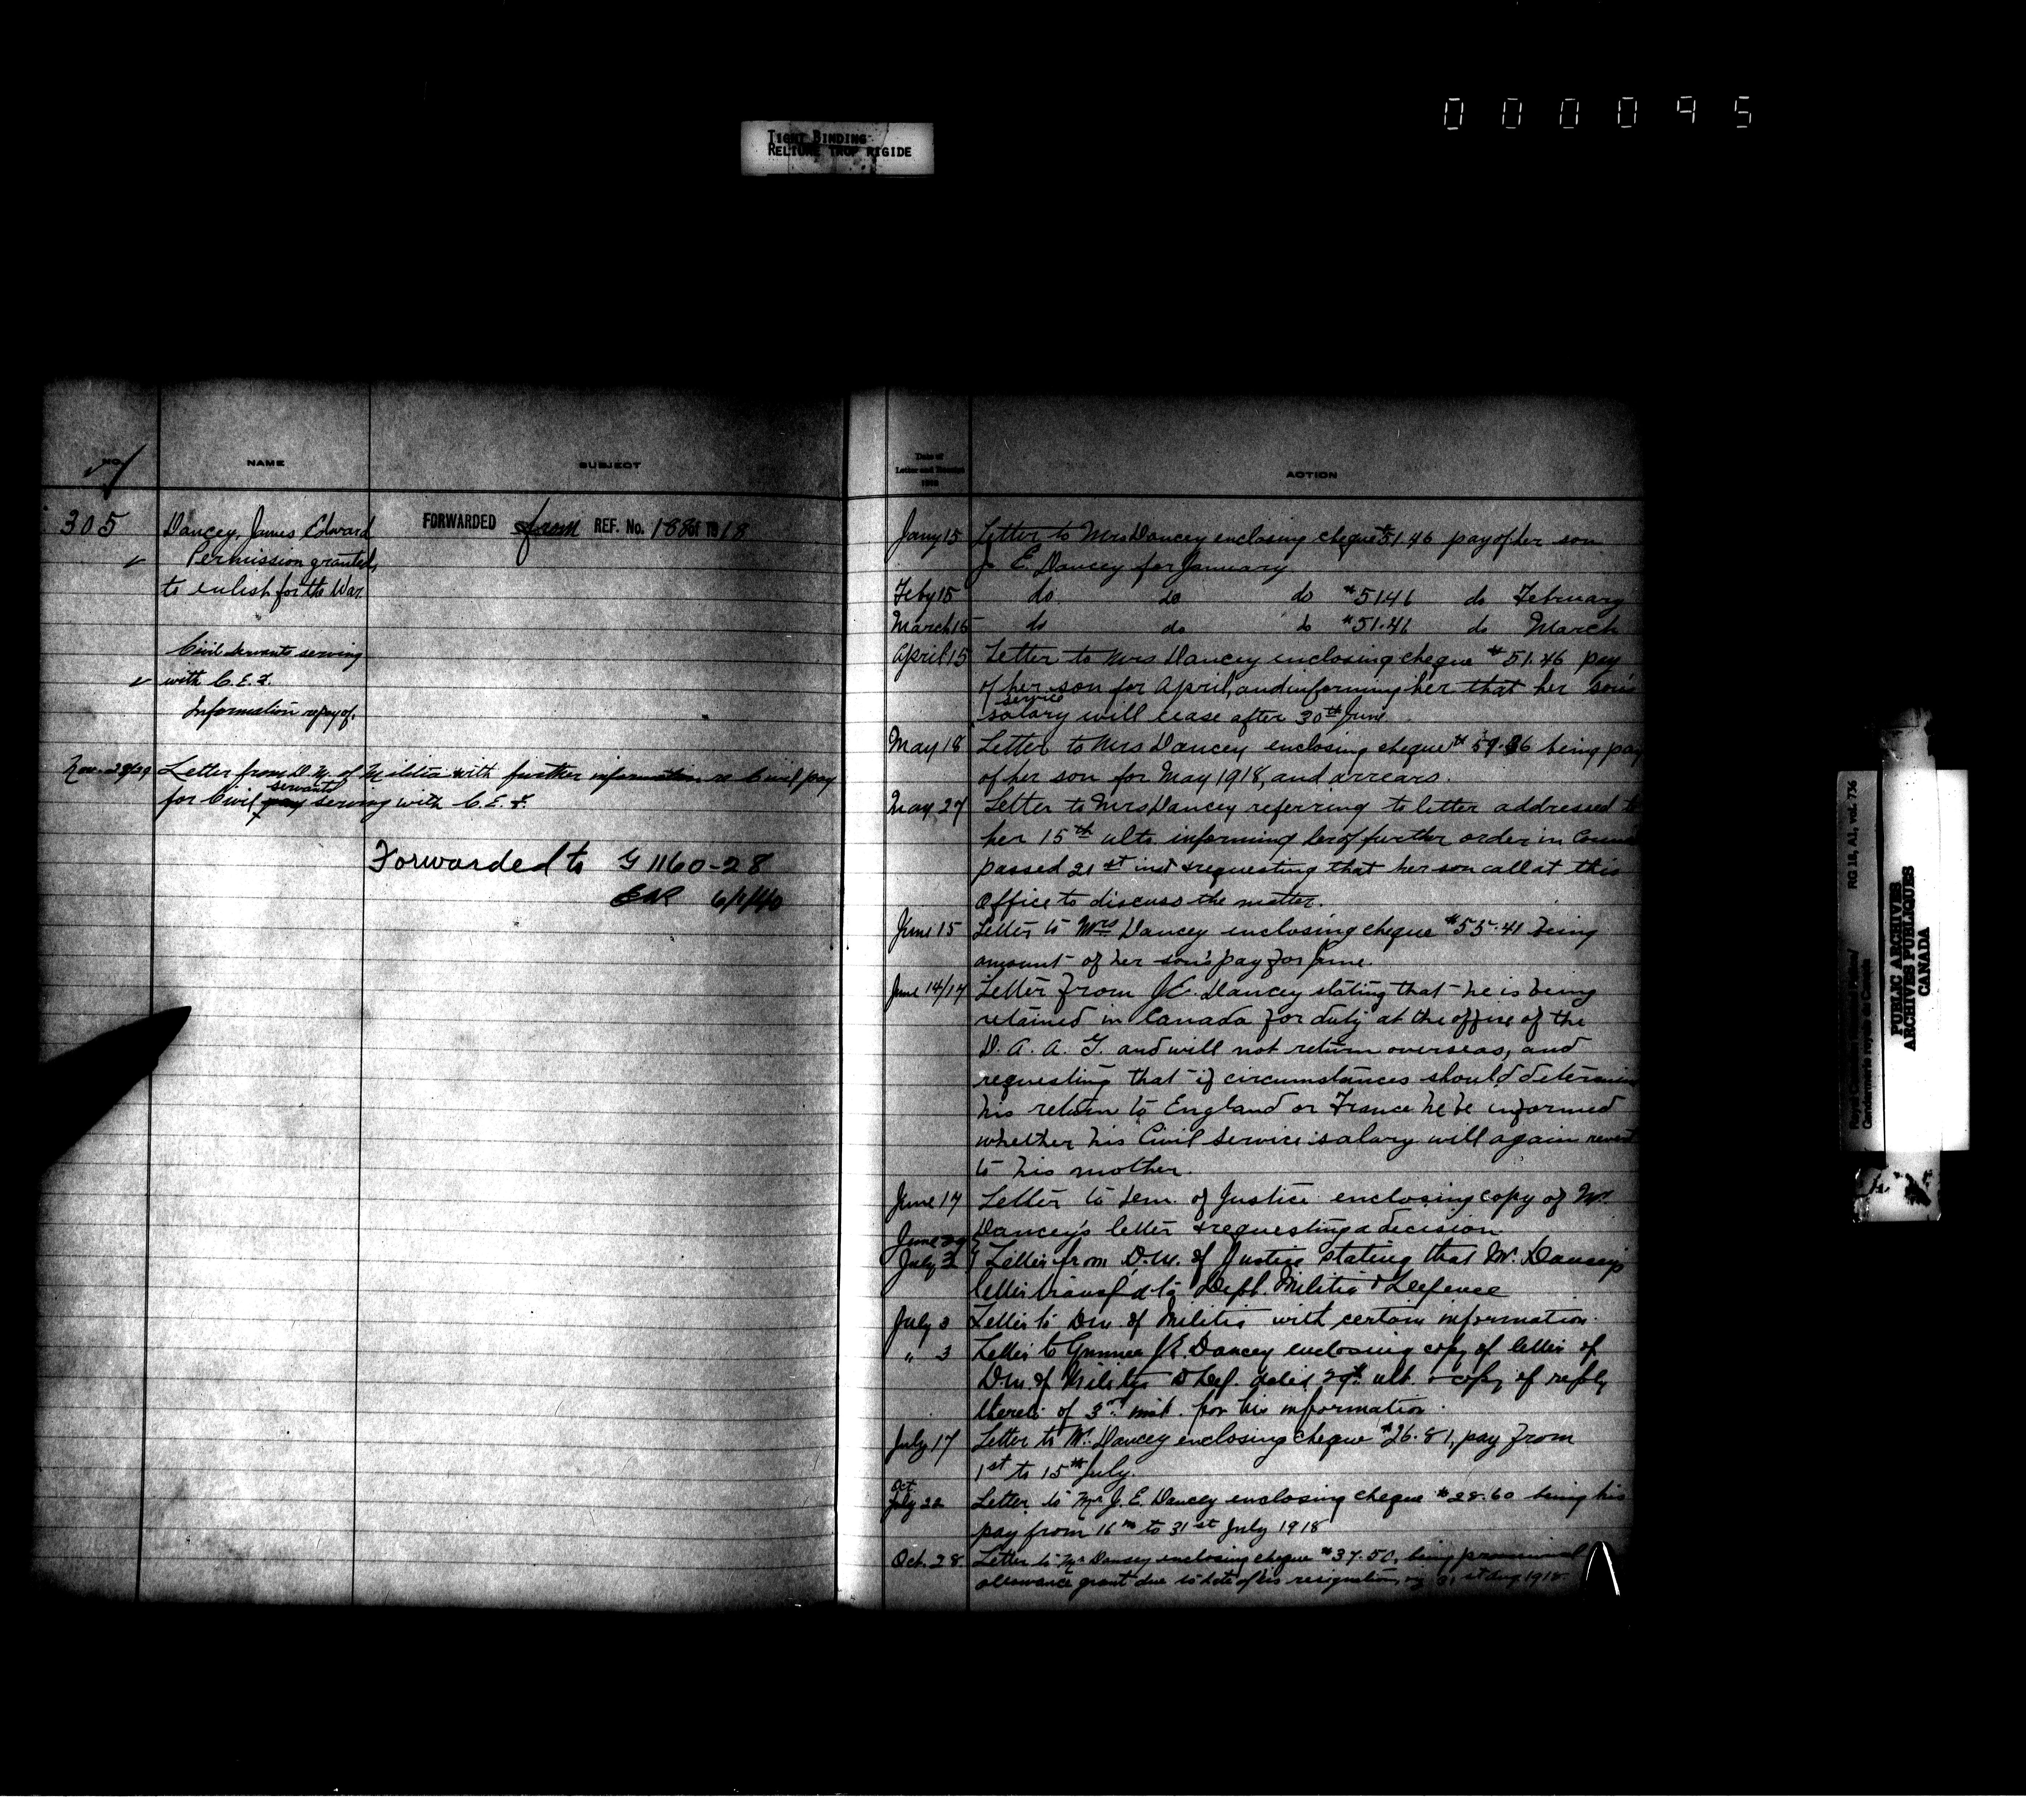 000095
TIGHT BINDING
RELIURE TROP RIGIDE
NO.
NAME
SUBJECT
305
Dancey, James Edward
Permission granted,
to enlist for the War
FORWARDED from REF. No.
Civil servants serving
with C.E.F.
Information re pay of.
Letter from D.M. of Militia with further information re Civil pay
for Civil pay servants serving with C.E.F.
Forwarded to G 1160-28
Date of
Letter and
1918
ACTION
Jany 15 Letter to Mrs Dancey enclosing cheque $51.46 pay of her son
J. E. Dancey for January
Feby 15 do do do $51.46 do February
March 15 do do do $51.46 do March
April 15 Letter to Mrs Dancey enclosing cheque $51.46 pay
of her son for April, and informing her that her son's
service
salary will cease after 30th June.
May 18 Letter to Mrs Dancey enclosing cheque being pay
of her son for May 1918, and arrears.
May 27 Letter to Mrs Dancey referring to letter addressed to
her 15th ulto. informing her of further order in
passed 21st inst & requesting that her son call at this
Office to discuss the matter.
June 15 Letter to Mrs Dancey enclosing cheque $55.41 being
amount of her son's pay for June.
June 14/17 Letter from J.E. Dancey stating that he is being
retained in Canada for duty at the office of the
D. A. A. G. and will not return overseas, and
requesting that if circumstances should determine
his return to England or France he be informed
whether his Civil Service salary will again revert
to his mother.
June 17 Letter to Dem. of Justice enclosing copy of Mr
Dancey's letter & requesting a decision
June 29
July 2 Letter from D.M. of Justice stating that Mr. Dancey's
letter transf'd to Dept. Militia & Defence
July 3 Letter to DM of Militia with certain information.
" 3 Letter to Gunner J.E. Dancey enclosing copy of letter of
D.M. of Militia & Def. dated 29th ult. & copy of reply
thereto of 3rd inst. for his information.
July 17 Letter to Mr. Dancey enclosing cheque $26.81, pay from
1st to 15th July.
Oct
July 22 Letter to Mr J. E. Dancey enclosing cheque $28.60 being his
pay from 16th to 31st July 1918
Oct. 28 Letter to Mr Dancey enclosing cheque $37.50, being provisional
allowance grant due to date of his resignation, 31st Aug 1918.
RG 18, A1, vol. 736
PUBLIC ARCHIVES
ARCHIVES PUBLIQUES
CANADA